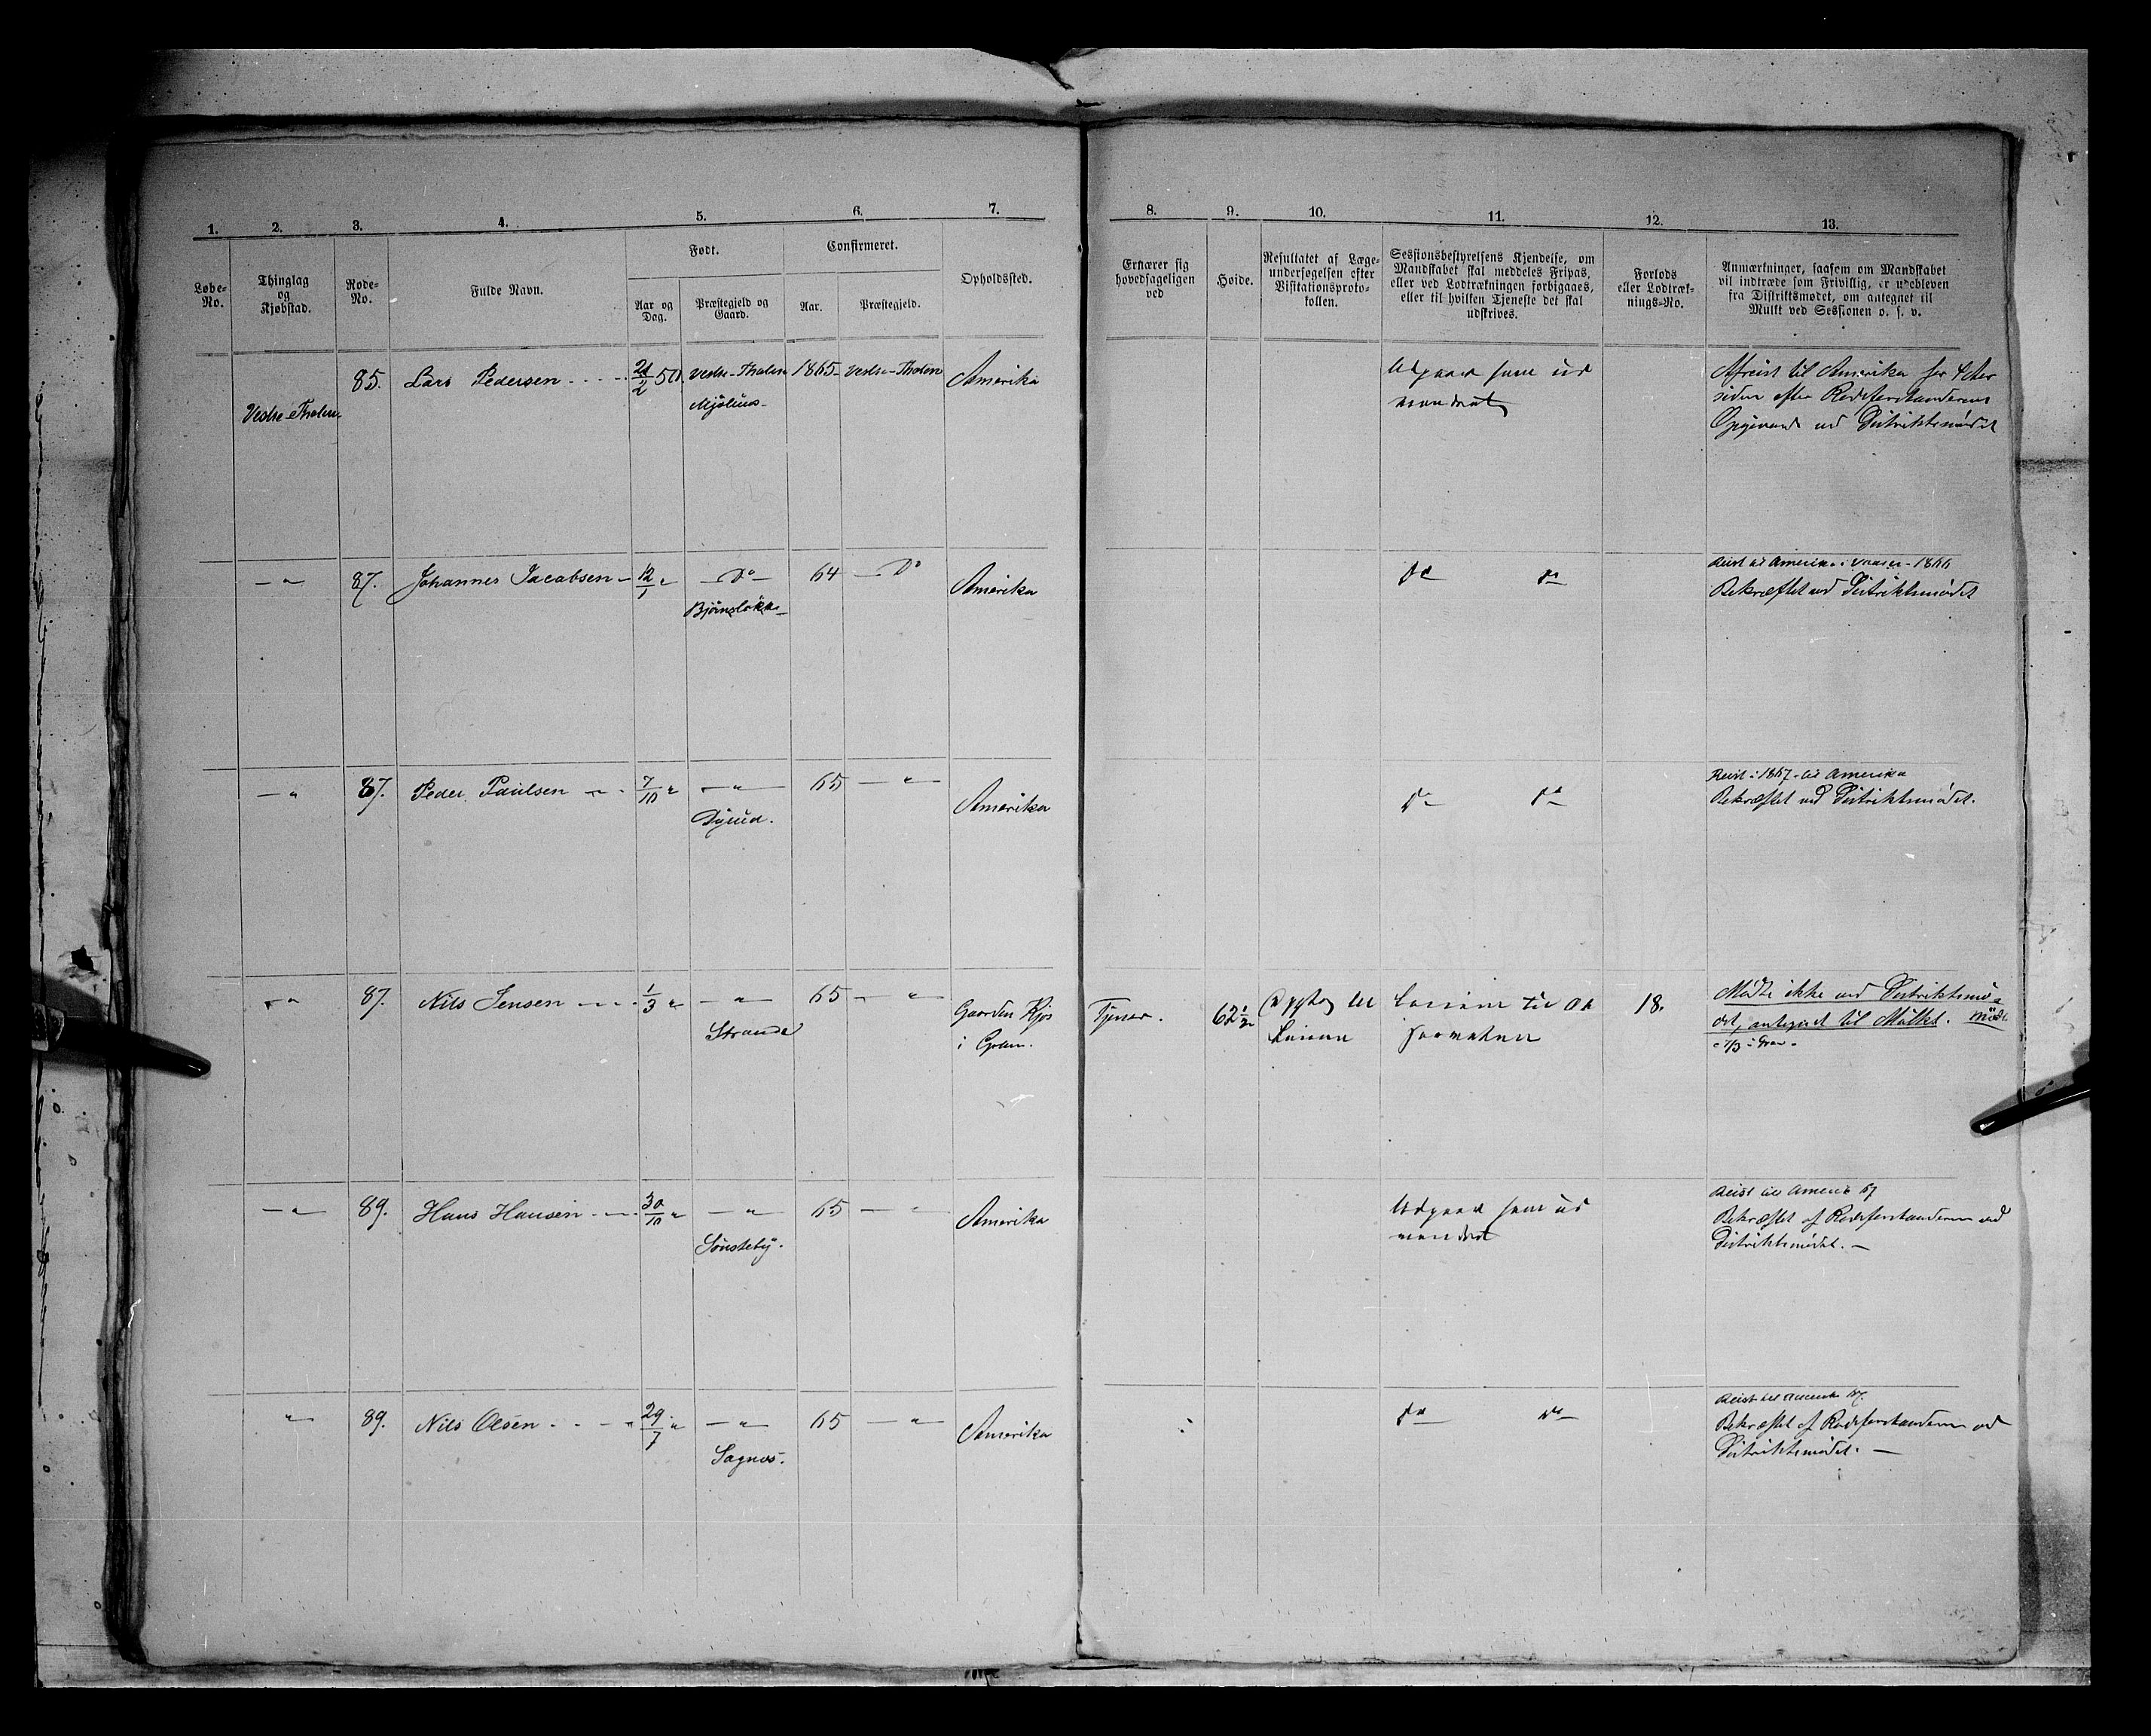 1. 2. 3. 4. 5. 6. 7. 8. 9. 10. 11. 12. 13.
Løbe-
No.
Thinglag
og
Kjøbstad.
Rode-
No.
Fulde Navn.
Født.
Aar og
Dag.
Præstegjeld og
Gaard.
Confirmeret.
Aar.
Præstegjeld.
Opholdssted.
Ernærer sig
hovedsageligen
ved
Høide.
Resultatet af Læge-
undersøgelsen efter
Visitationsproto-
kollen.
Sessionsbestyrelsens Kjendelse, om
Mandskabet skal meddeles Fripas,
eller ved Lodtrækningen forbigaaes,
eller til hvilken Tjeneste det skal
udskrives.
Forlods
eller Lodtræk-
nings-No.
Anmærkninger, saasom om Mandskabet
vil indtræde som Frivillig, er udebleven
fra Distriktsmødet, om antegnet til
Mulkt ved Sessionen o. s. v.
Vestre-Tholen
85. Lars Pedersen 2 50. Vestre-Tholen 1865 Vestre-Tholen Amerika
Mjølius
Udgaar som ud
vandret
Afreist til Amerika for 4 Aar
siden efter Rodeforstanderens
Opgivende ved Distriktsmødet
-"- 87. Johannes Jacobsen 12/1 " -Do- 64 -Do Amerika
Bjørnsløkke
do do
Reist til Amerika i Vaaren 1866
Bekræftet ved Distriktsmødet
-"- 87. Peder Paulsen 7/10 " -"- 65 -"- Amerika
Dyrud.
do do
Reist i 1867 til Amerika
Bekræftet ved Distriktsmødet.
-"- 87. Nils Jensen 1/3 " -"- 65 -"- Gaarden Kjos
i Gran.
Strande
Tjener. 62 1/2
Linien
Linien til
18.
Mødte ikke ved Distriktsmø-
det, antegnet til Mulkt. Mødt
7/3 i Gran
-"- 89. Hans Hansen 30/10 " -"- 65 -"- Amerika
Sønsteby.
Udgaar som ud
vandret
Reist til Amerik 67
Bekræftet af Rodeforstanderen ved
Distriktsmødet.
-"- 89. Nils Olsen 29/7 " -"- 65 -"- Amerika
Sagnæs.
do do
Reist til Amerika 67.
Bekræftet af Rodeforstanderen ved
Distriktsmødet.